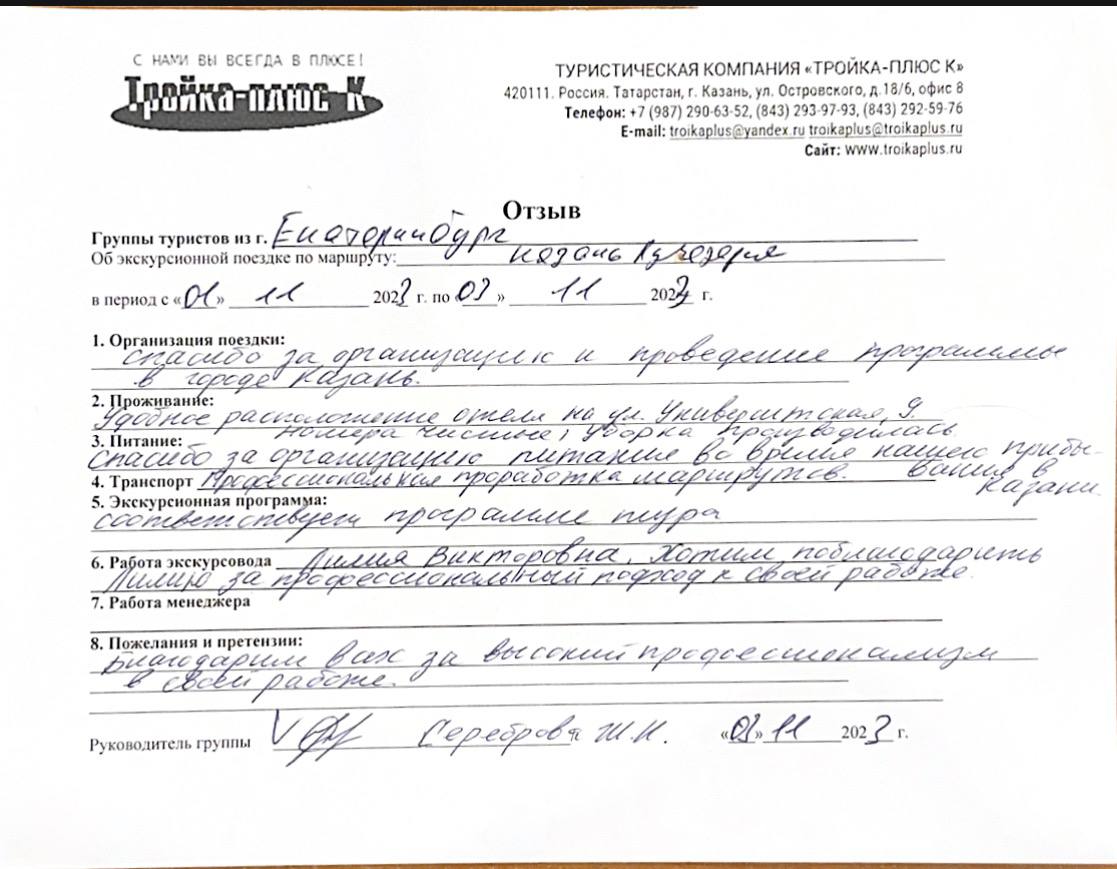 С НАМИ ВЫ ВСЕГДА В ПЛЮСЕ!
Тройка-плюс К
ТУРИСТИЧЕСКАЯ КОМПАНИЯ «ТРОЙКА-ПЛЮС К»
420111. Россия. Татарстан, г. Казань, ул. Островского, д.18/6, офис 8
Телефон: +7 (987) 290-63-52, (843) 293-97-93, (843) 292-59-76
E-mail: troikaplus@yandex.ru troikaplus@troikaplus.ru
Сайт: www.troikaplus.ru
Отзыв
Группы туристов из г. Екатеринбург
Об экскурсионной поездке по маршруту: Казань
в период с «01» 11 2023 г. по 03» 11 2023 г.
1. Организация поездки:
Спасибо за организацию и проведение программы
в городе Казань.
2. Проживание:
Удобное расположение отеля на ул. Университская, 9.
Номера чистые, уборка производилась.
3. Питание:
Спасибо за организацию питания во время нашего прибы-
вания в Казани.
4. Транспорт Профессиональная проработка маршрутов.
5. Экскурсионная программа:
соответствует программе тура
6. Работа экскурсовода Лилия Викторовна. Хотим поблагодарить
Лилию за профессиональный подход к своей работе.
7. Работа менеджера
8. Пожелания и претензии:
Благодарим Вас за высокий профессионализм
в своей работе.
Руководитель группы Сереброва Ж.Н. «03» 11 2023 г.